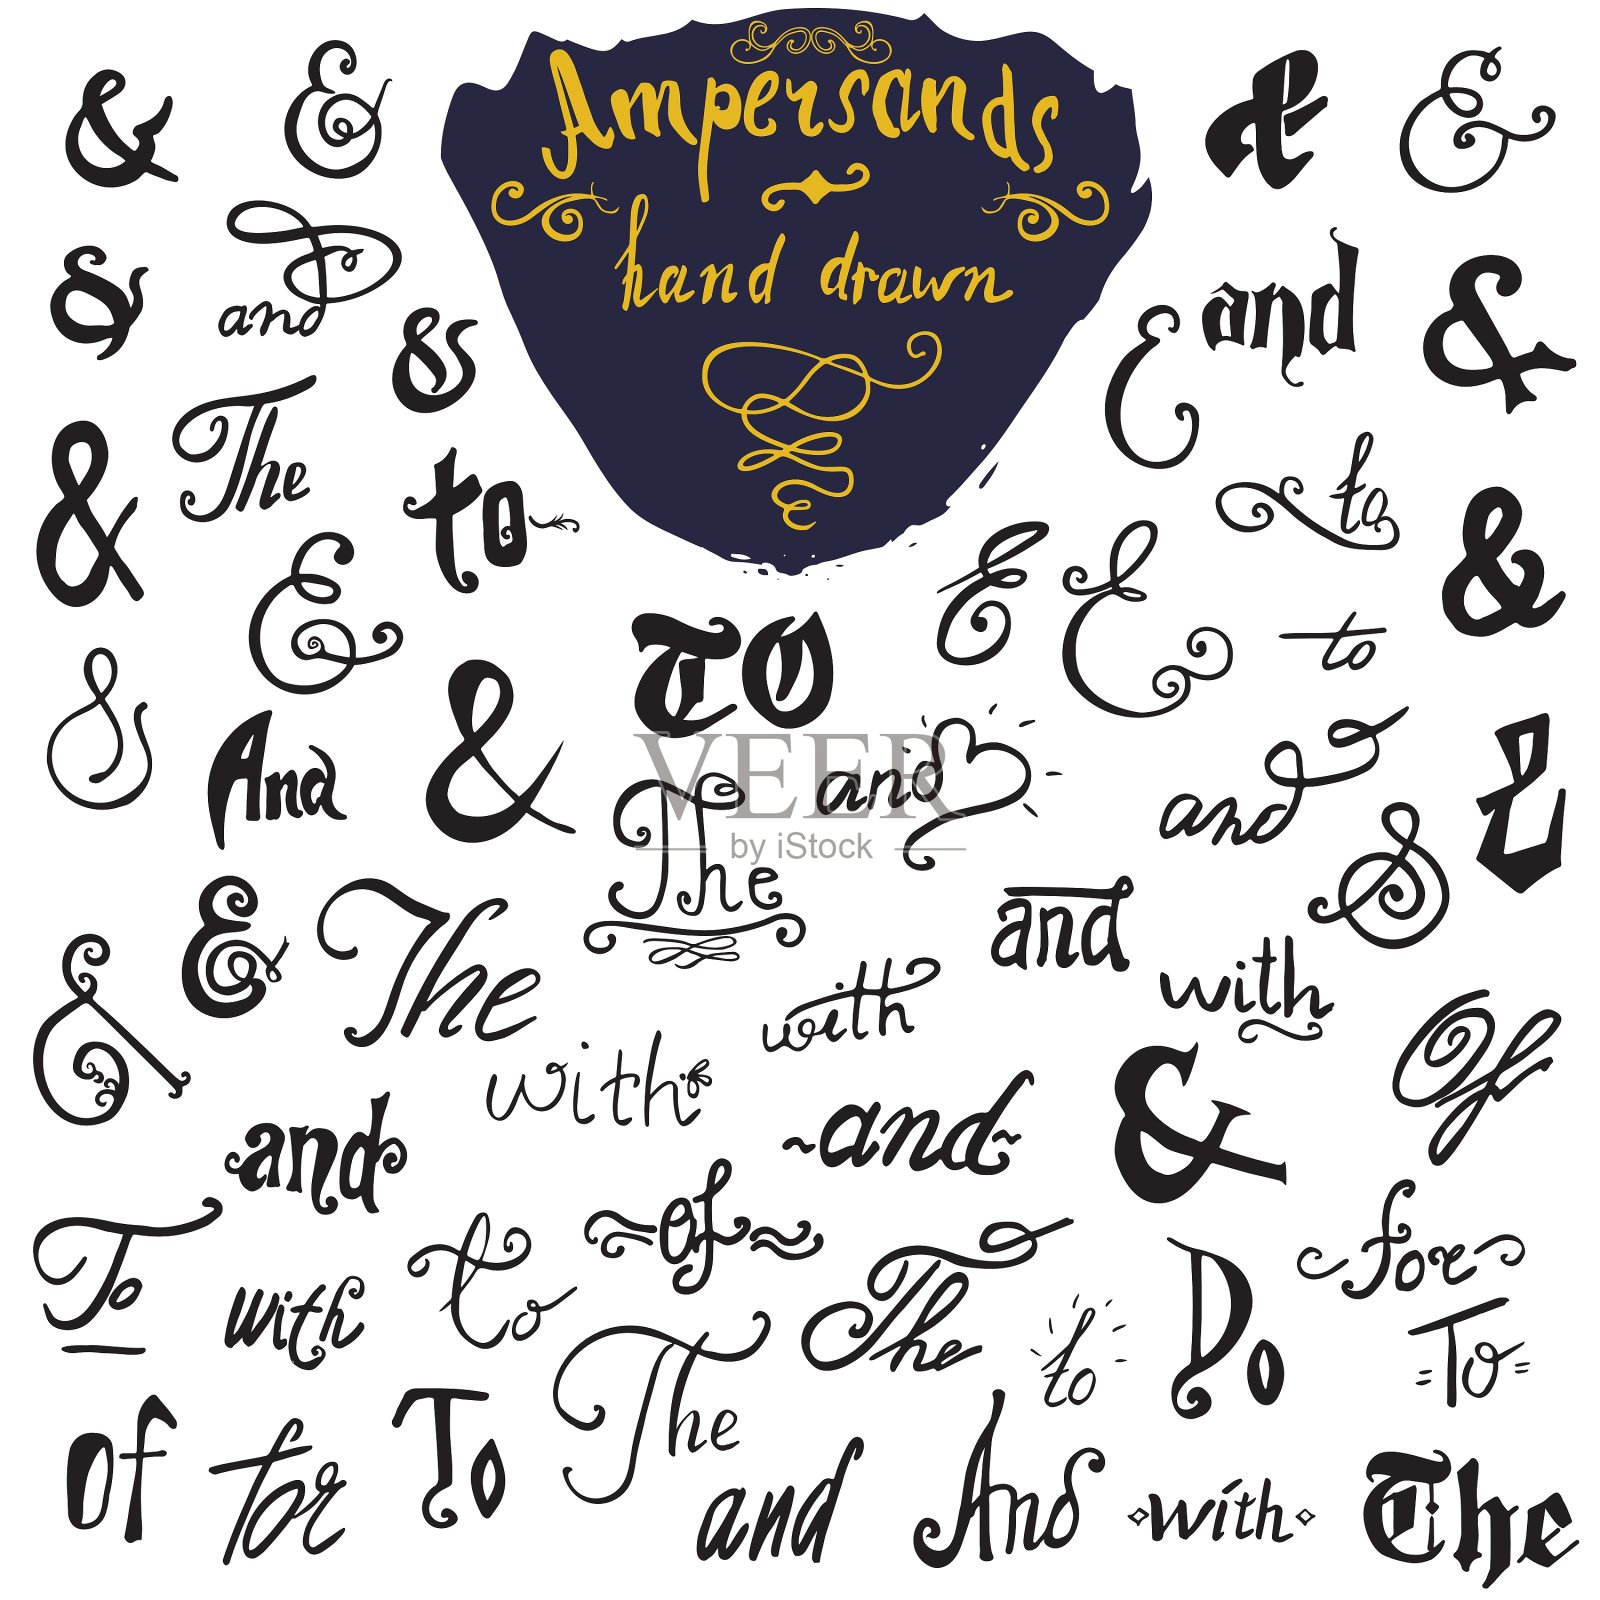 Ampersands
hand drawn
& & & &
and
&
& and &
&
The
to
& to
&
& & & to
&
TO
& And & and and &
The
&
& The and with
with
with
Of
and and &
To of for
with to The to Do To
The
of for To and And with The
VEER
by iStock